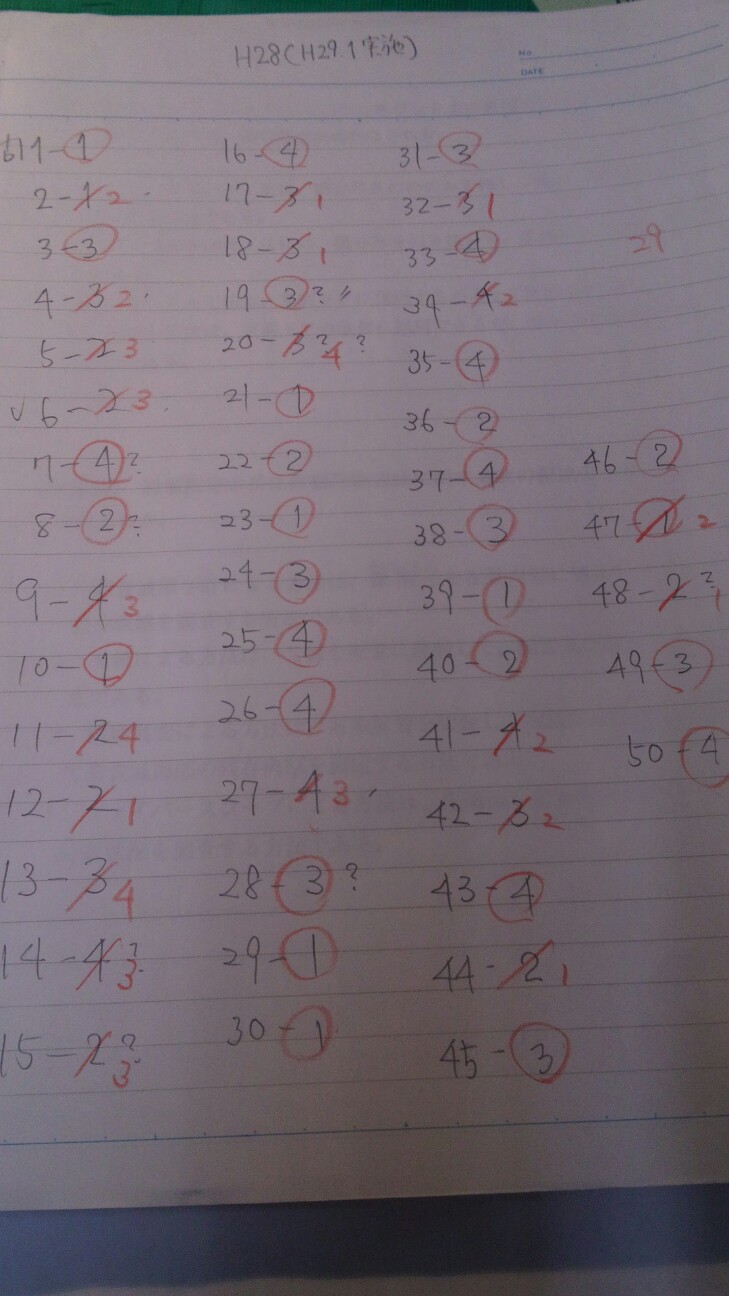 H28(H29.1実施)
No.
DATE
問1-1
2-1 2
3-3
4-3 2
5-2 3
✓6-2 3
7-4?
8-2?
9-4 3
10-1
11-2 4
12-2 1
13-3 4
14-4? 3
15-2? 3
16-4
17-3 1
18-3 1
19-3?〃
20-3? 4 ?
21-1
22-2
23-1
24-3
25-4
26-4
27-4 3
28-3?
29-1
30-1
31-3
32-3 1
33-4
34-4 2
35-4
36-2
37-4
38-3
39-1
40-2
41-4 2
42-3 2
43-4
44-2 1
45-3
29
46-2
47-1 2
48-2? 1
49-3
50-4